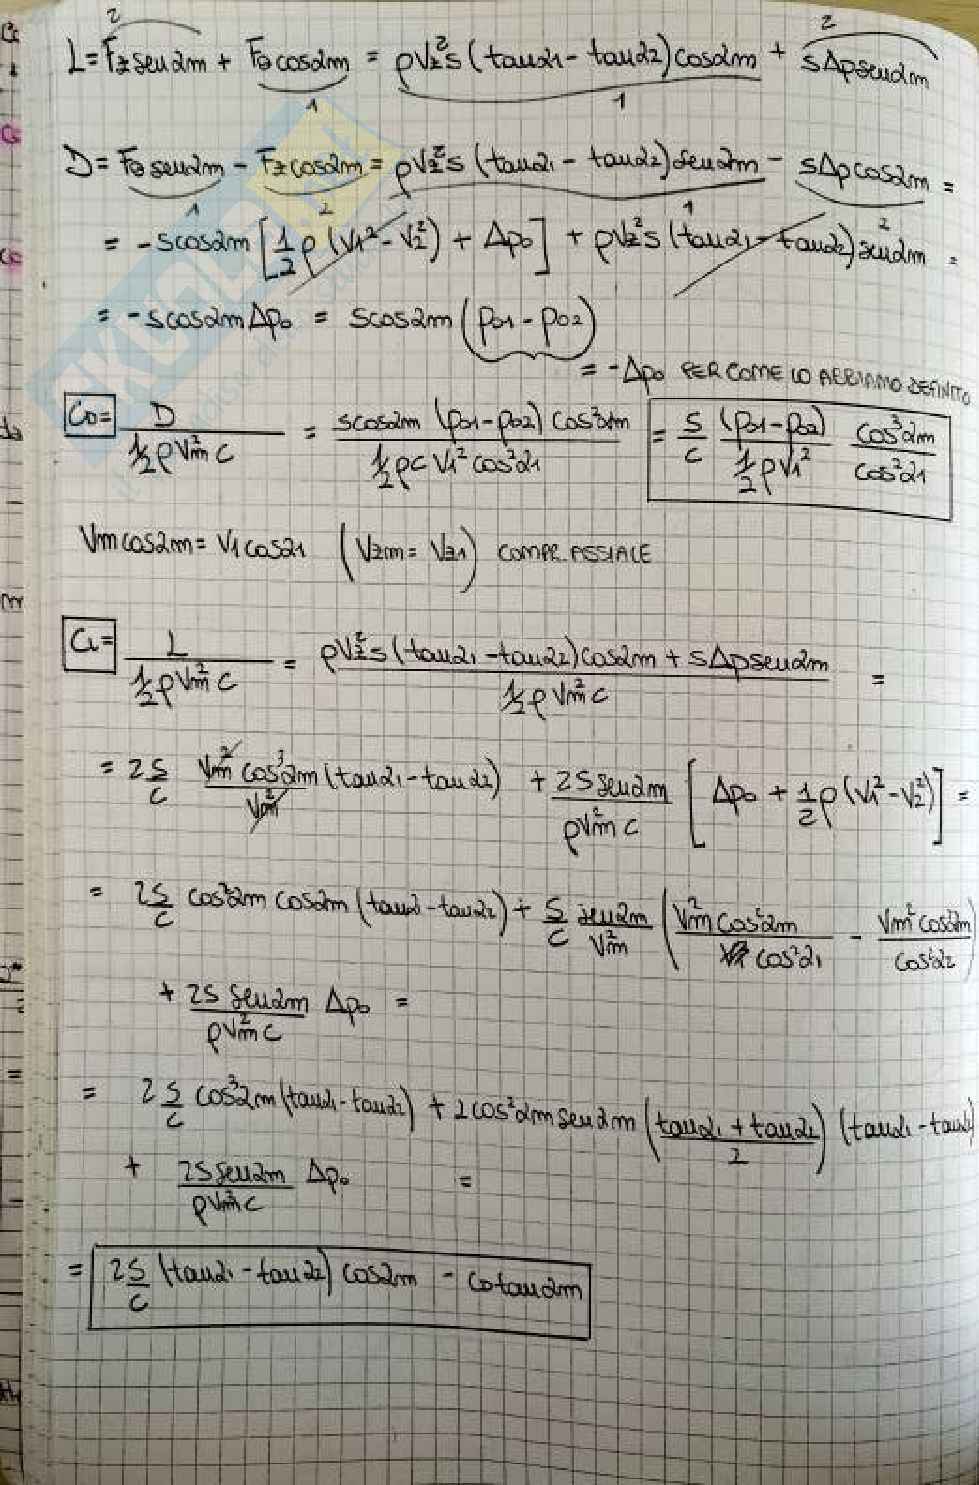 L = Fz sen αm + Fθ cos αm = ρVz² s (tan α1 - tan α2) cos αm + sΔp sen αm
2 1 1 2
D = Fθ sen αm - Fz cos αm = ρVz² s (tan α1 - tan α2) sen αm - sΔp cos αm =
1 2 1 2
= - s cos αm [ 1/2 ρ (V1² - V2²) + Δp0 ] + ρVz² s (tan α1 - tan α2) sen αm =
= - s cos αm Δp0 = s cos αm (p01 - p02)
= - Δp0 PER COME LO ABBIAMO DEFINITO
CD = D / (1/2 ρ Vm² c) = s cos αm (p01 - p02) cos² αm / (1/2 ρ c V1² cos² α1) = s/c (p01 - p02) / (1/2 ρ V1²) cos³ αm / cos² α1
Vm cos αm = V1 cos α1 (Vzm = Vz1) COMP. ASSIALE
CL = L / (1/2 ρ Vm² c) = (ρVz² s (tan α1 - tan α2) cos αm + sΔp sen αm) / (1/2 ρ Vm² c) =
= 2 s/c Vm² cos³ αm / Vm² (tan α1 - tan α2) + 2 s sen αm / (ρ Vm² c) [ Δp0 + 1/2 ρ (V1² - V2²) ] =
= 2 s/c cos² αm cos αm (tan α1 - tan α2) + s/c sen αm / Vm² ( Vm² cos² αm / cos² α1 - Vm² cos² αm / cos² α2 )
+ 2 s sen αm / (ρ Vm² c) Δp0 =
= 2 s/c cos³ αm (tan α1 - tan α2) + 2 cos² αm sen αm ( (tan α1 + tan α2) / 2 ) (tan α1 - tan α2)
+ 2 s sen αm / (ρ Vm² c) Δp0 =
= 2 s/c (tan α1 - tan α2) cos αm - CD tan αm